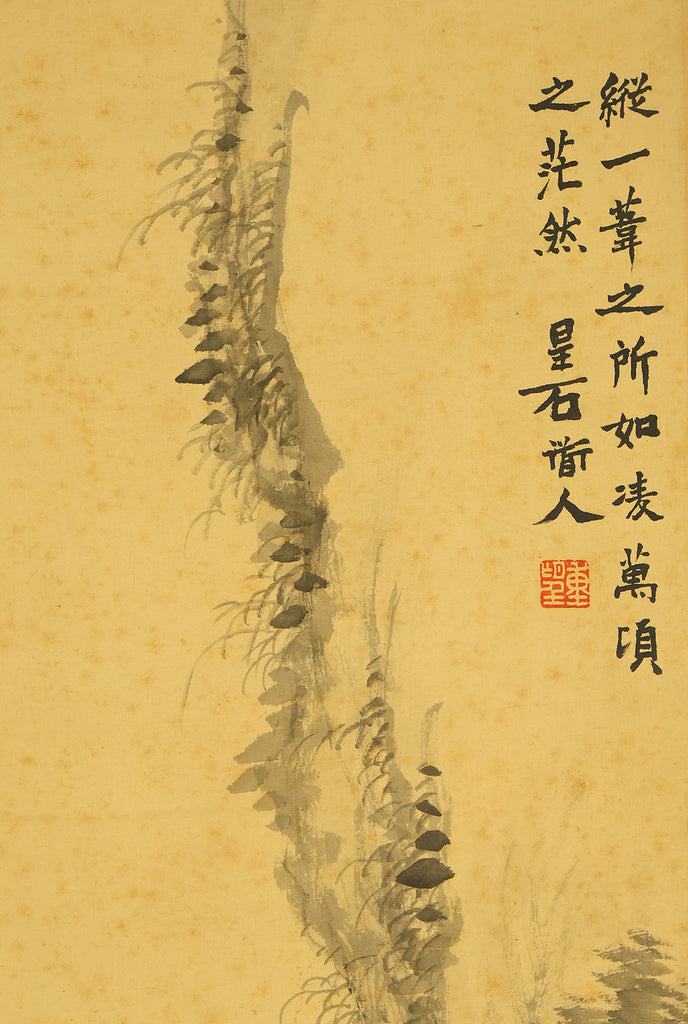 縱一葦之所如凌萬頃
之茫然 星石衜人